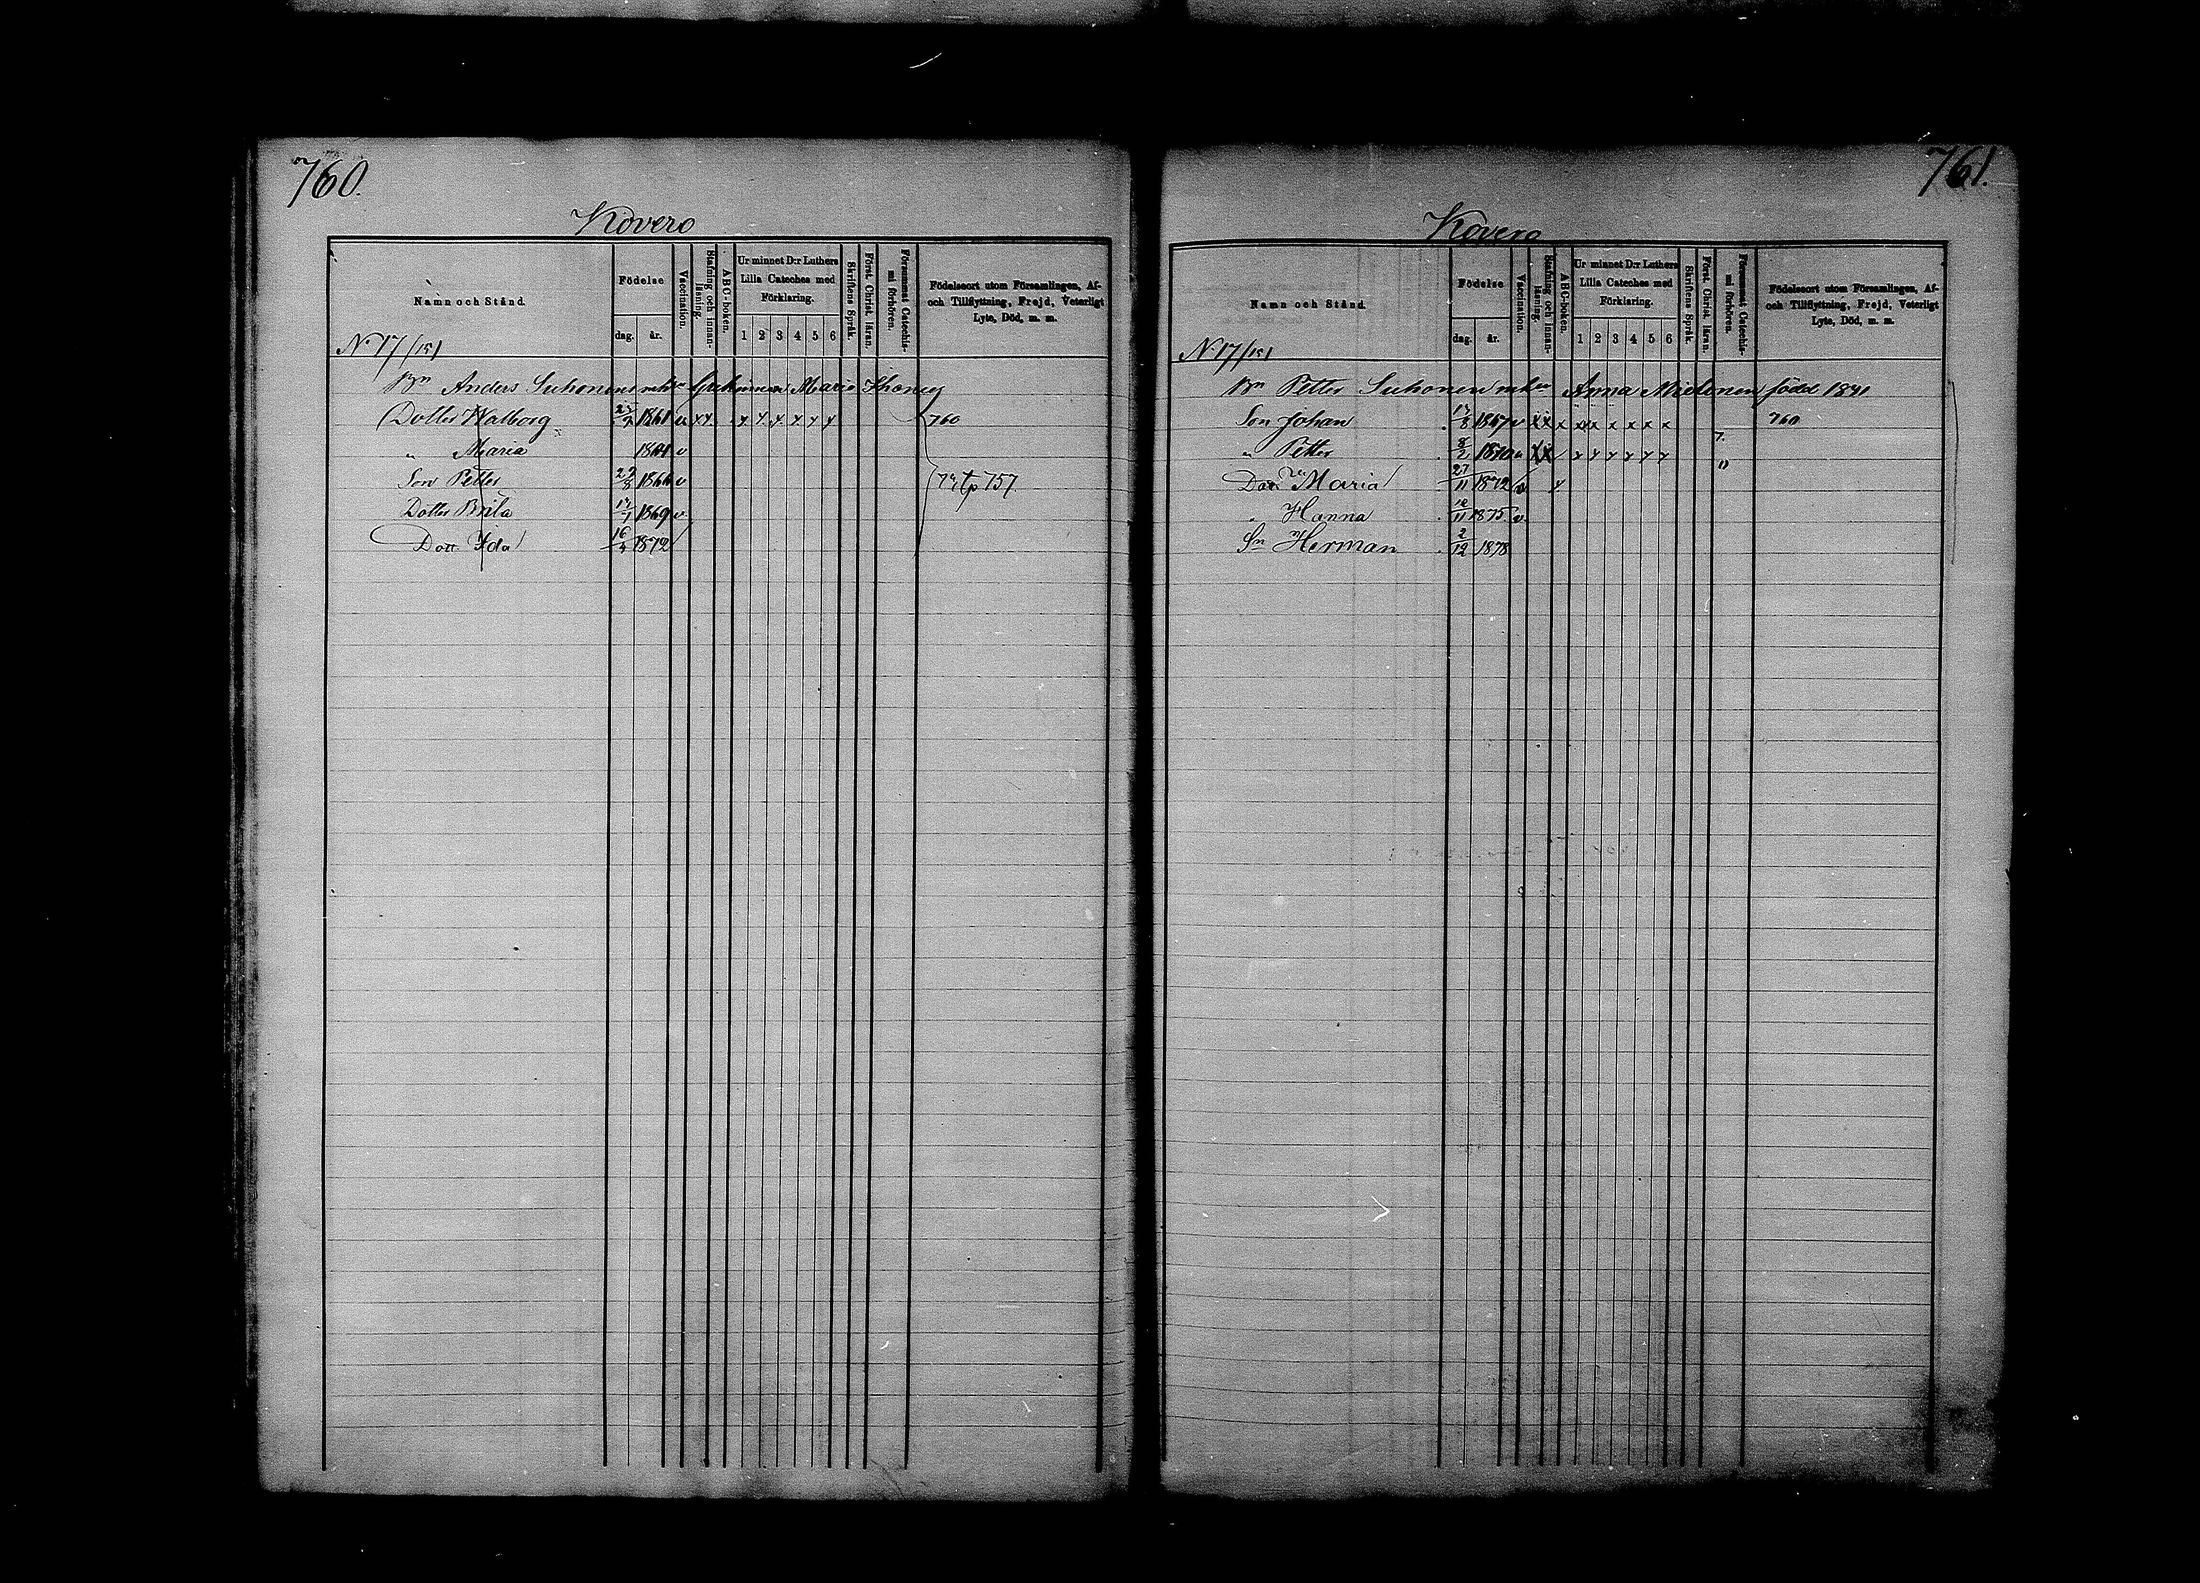 760.
Kovero
Namn och Stånd.
Födelse
dag. år.
Vaccination.
Stafning och innan-
läsning.
ABC-boken.
Ur minnet D:r Luthers
Lilla Cateches med
Förklaring.
1 2 3 4 5 6
Skriftens Språk.
Först. Christ. läran.
Försummat Catechis-
mi förhören.
Födelseort utom Församlingen, Af-
och Tillflyttning, Frejd, Veterligt
Lyte, Död, m. m.
N 17/151
Bn Anders Suhonens Maria
Dotter Walborg 1861 v x x x x x x x x 760
" Maria v
Son Petter 23/8 1866 v 757
Dotter Brita 1869 v
Dott Ida 16/4 1872
761.
Kovero
Namn och Stånd.
Födelse
dag. år.
Vaccination.
Stafning och innan-
läsning.
ABC-boken.
Ur minnet D:r Luthers
Lilla Cateches med
Förklaring.
1 2 3 4 5 6
Skriftens Språk.
Först. Christ. läran.
Försummat Catechis-
mi förhören.
Födelseort utom Församlingen, Af-
och Tillflyttning, Frejd, Veterligt
Lyte, Död, m. m.
N 17/151
Bn Petter Suhonen Anna född
Son Johan 1867 v x x x x x x x x x 760
" Petter 8/2 1870 v x x x x x x x x
Dott Maria 27/11 1872 v
" Hanna 1875 v
Sn Herman 2/12 1878